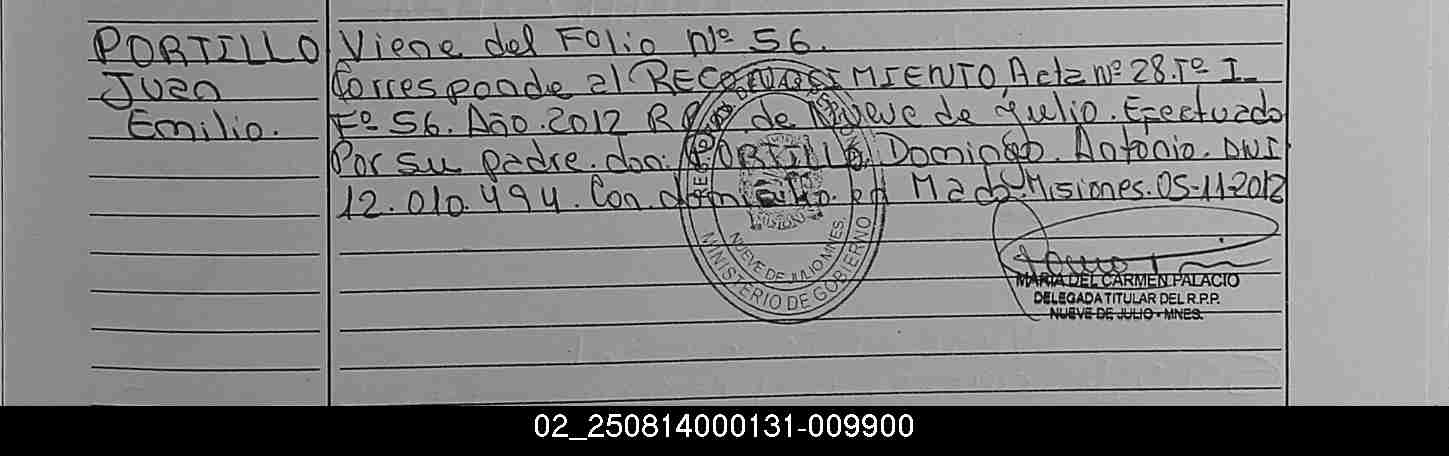 PORTILLO
Juan
Emilio.
Viene del Folio Nº 56.
Corresponde al RECONOCISIMIENTO, Acta nº 28. Tº I
Fº 56. Año. 2012 R de Nueve de Julio. Efectuado
Por su padre. don: PORTILLO, Domingo. Antonio. DNI
12.010.494. Con domicilio. en Mado. Misiones. 05-11-2012
NUEVE DE JULIO MNES.
MINISTERIO DE GOBIERNO
MARIA DEL CARMEN PALACIO
DELEGADA TITULAR DEL R.P.P.
NUEVE DE JULIO - MNES.
02_250814000131-009900